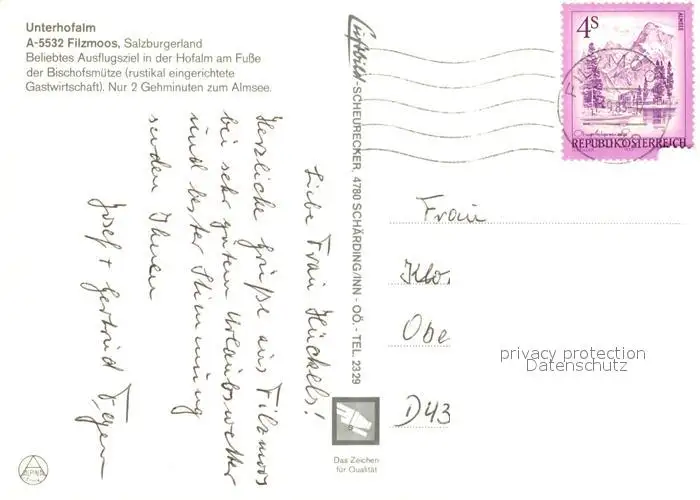 Unterhofalm
A-5532 Filzmoos, Salzburgerland
Beliebtes Ausflugsziel in der Hofalm am Fuße
der Bischofsmütze (rustikal eingerichtete
Gastwirtschaft). Nur 2 Gehminuten zum Almsee.
Liebe Frau Hückels!
Herzliche Grüße aus Filzmoos
bei sehr gutem Urlaubswetter
und bester Stimmung
senden Ihnen
Josef + Gertrud
Luftbild-SCHEURECKER, 4780 SCHÄRDING/INN - OÖ. - TEL. 2329
Das Zeichen
für Qualität
ALPINA
4S
ALMSEE
REPUBLIK ÖSTERREICH
FILZMOOS
Frau
Klo
Obe
D43
privacy protection
Datenschutz